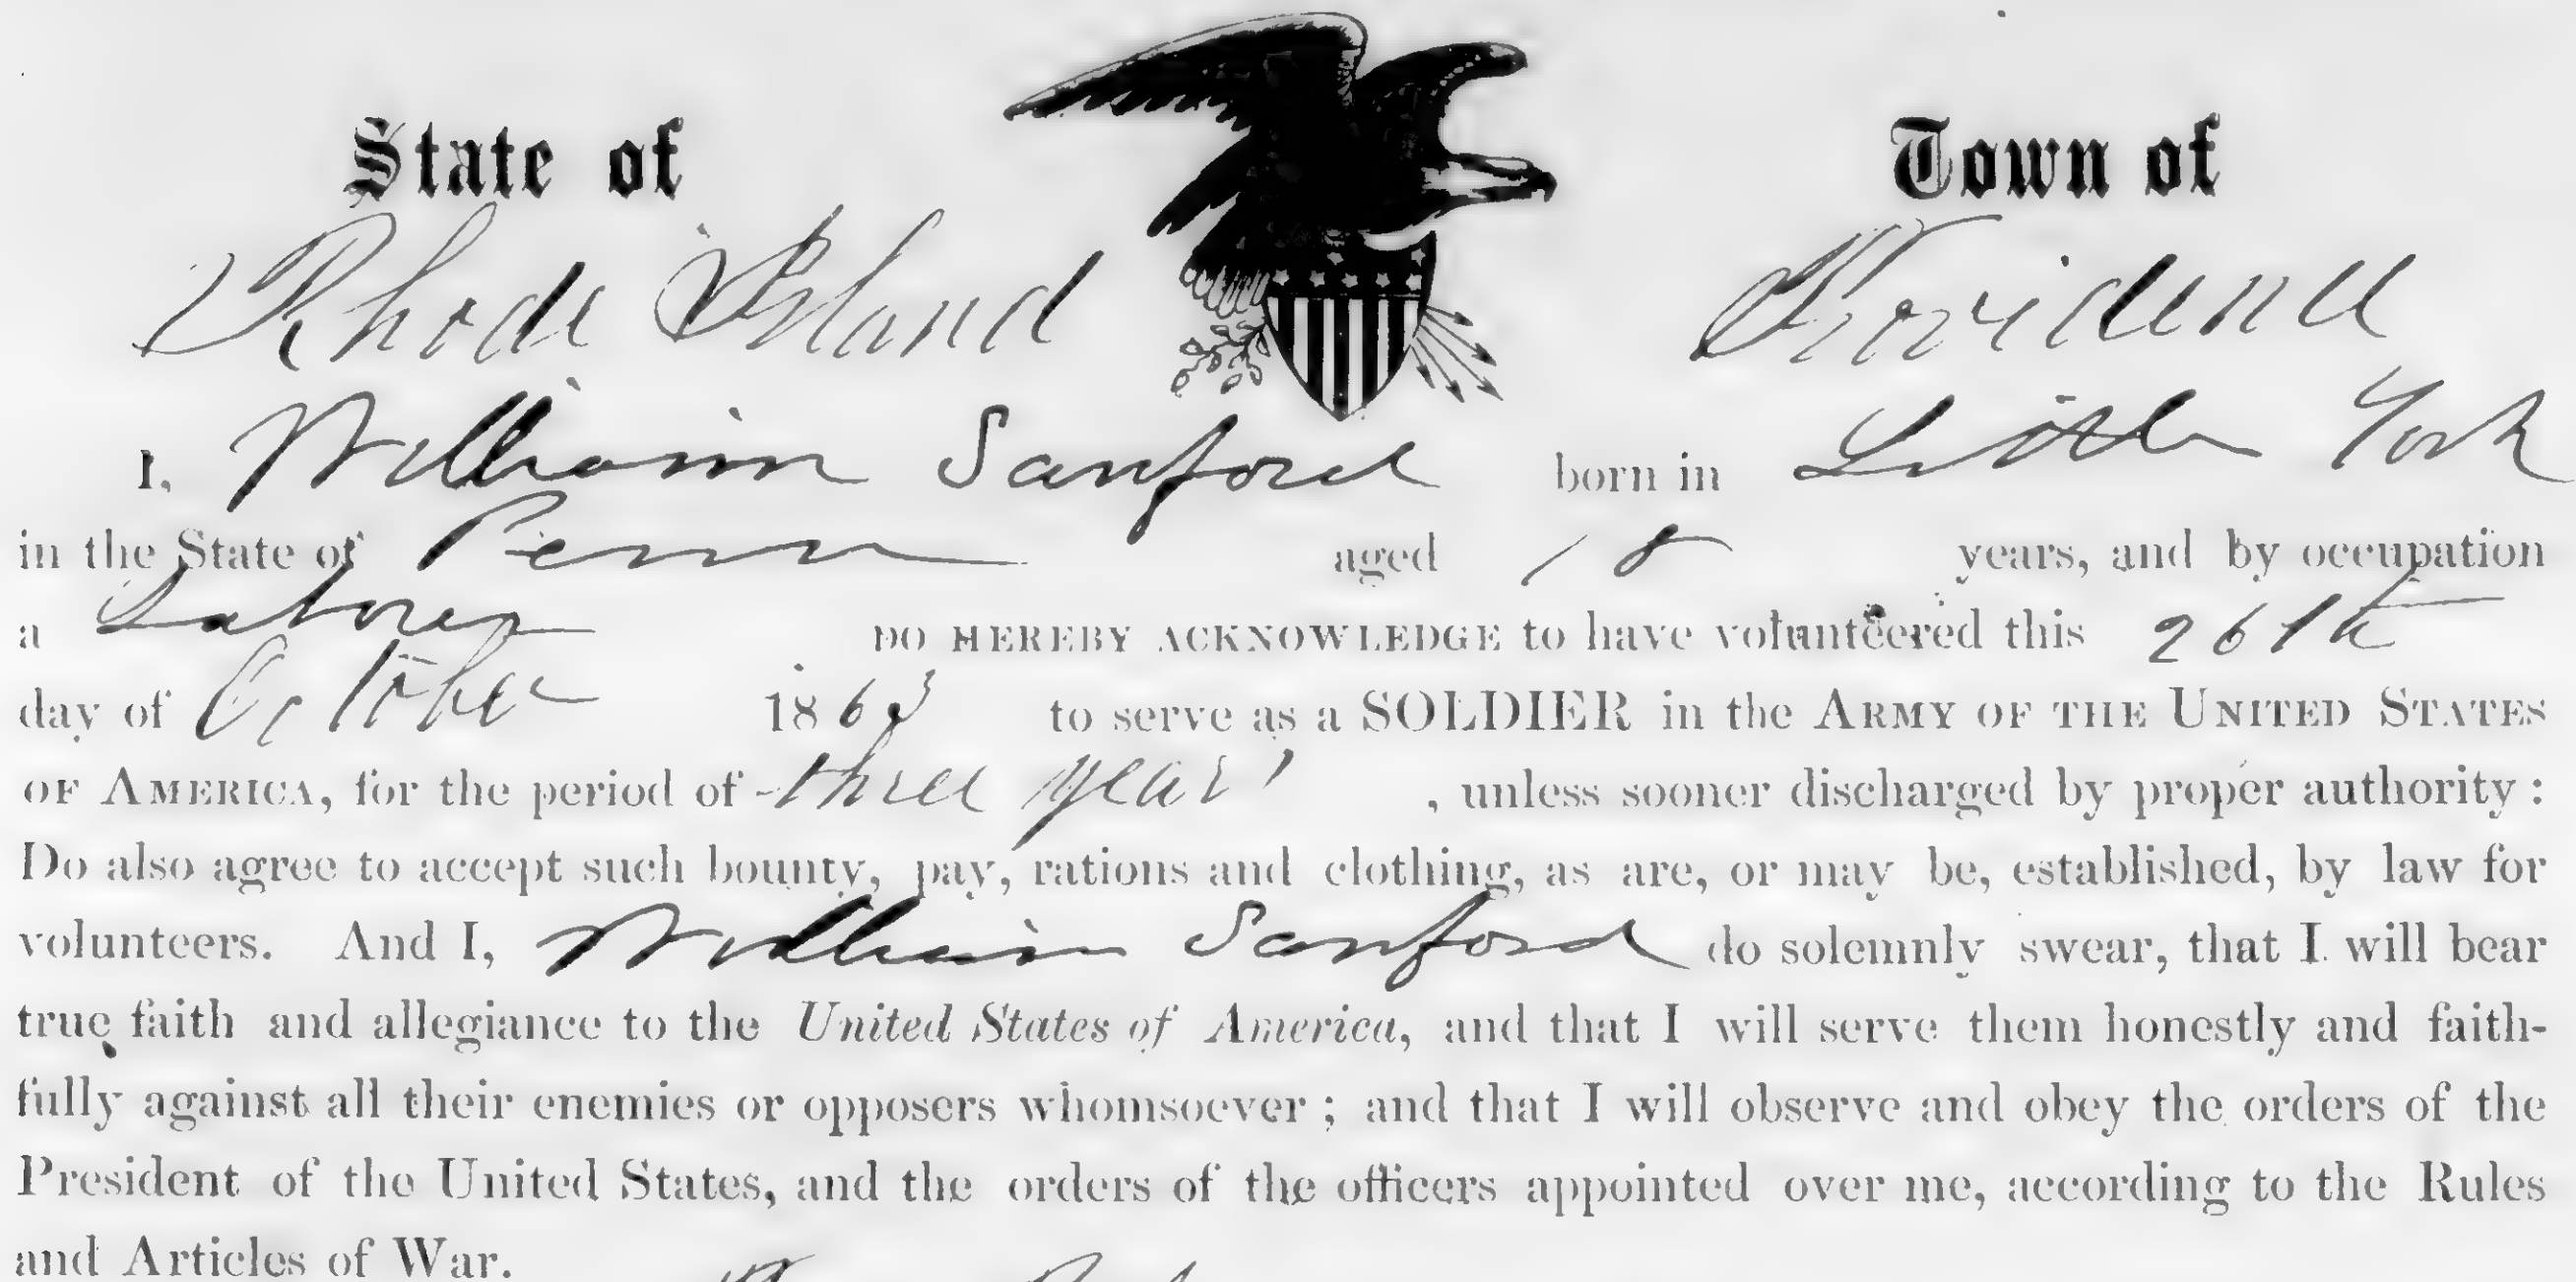 State of
Town of
Rhode Island
Providence
I, William Sanford born in Little York
in the State of Penn aged 18 years, and by occupation
a Laborer DO HEREBY ACKNOWLEDGE to have volunteered this 26th
day of October 1863 to serve as a SOLDIER in the ARMY OF THE UNITED STATES
OF AMERICA, for the period of three years , unless sooner discharged by proper authority :
Do also agree to accept such bounty, pay, rations and clothing, as are, or may be, established, by law for
volunteers. And I, William Sanford do solemnly swear, that I will bear
true faith and allegiance to the United States of America, and that I will serve them honestly and faith-
fully against all their enemies or opposers whomsoever ; and that I will observe and obey the orders of the
President of the United States, and the orders of the officers appointed over me, according to the Rules
and Articles of War.